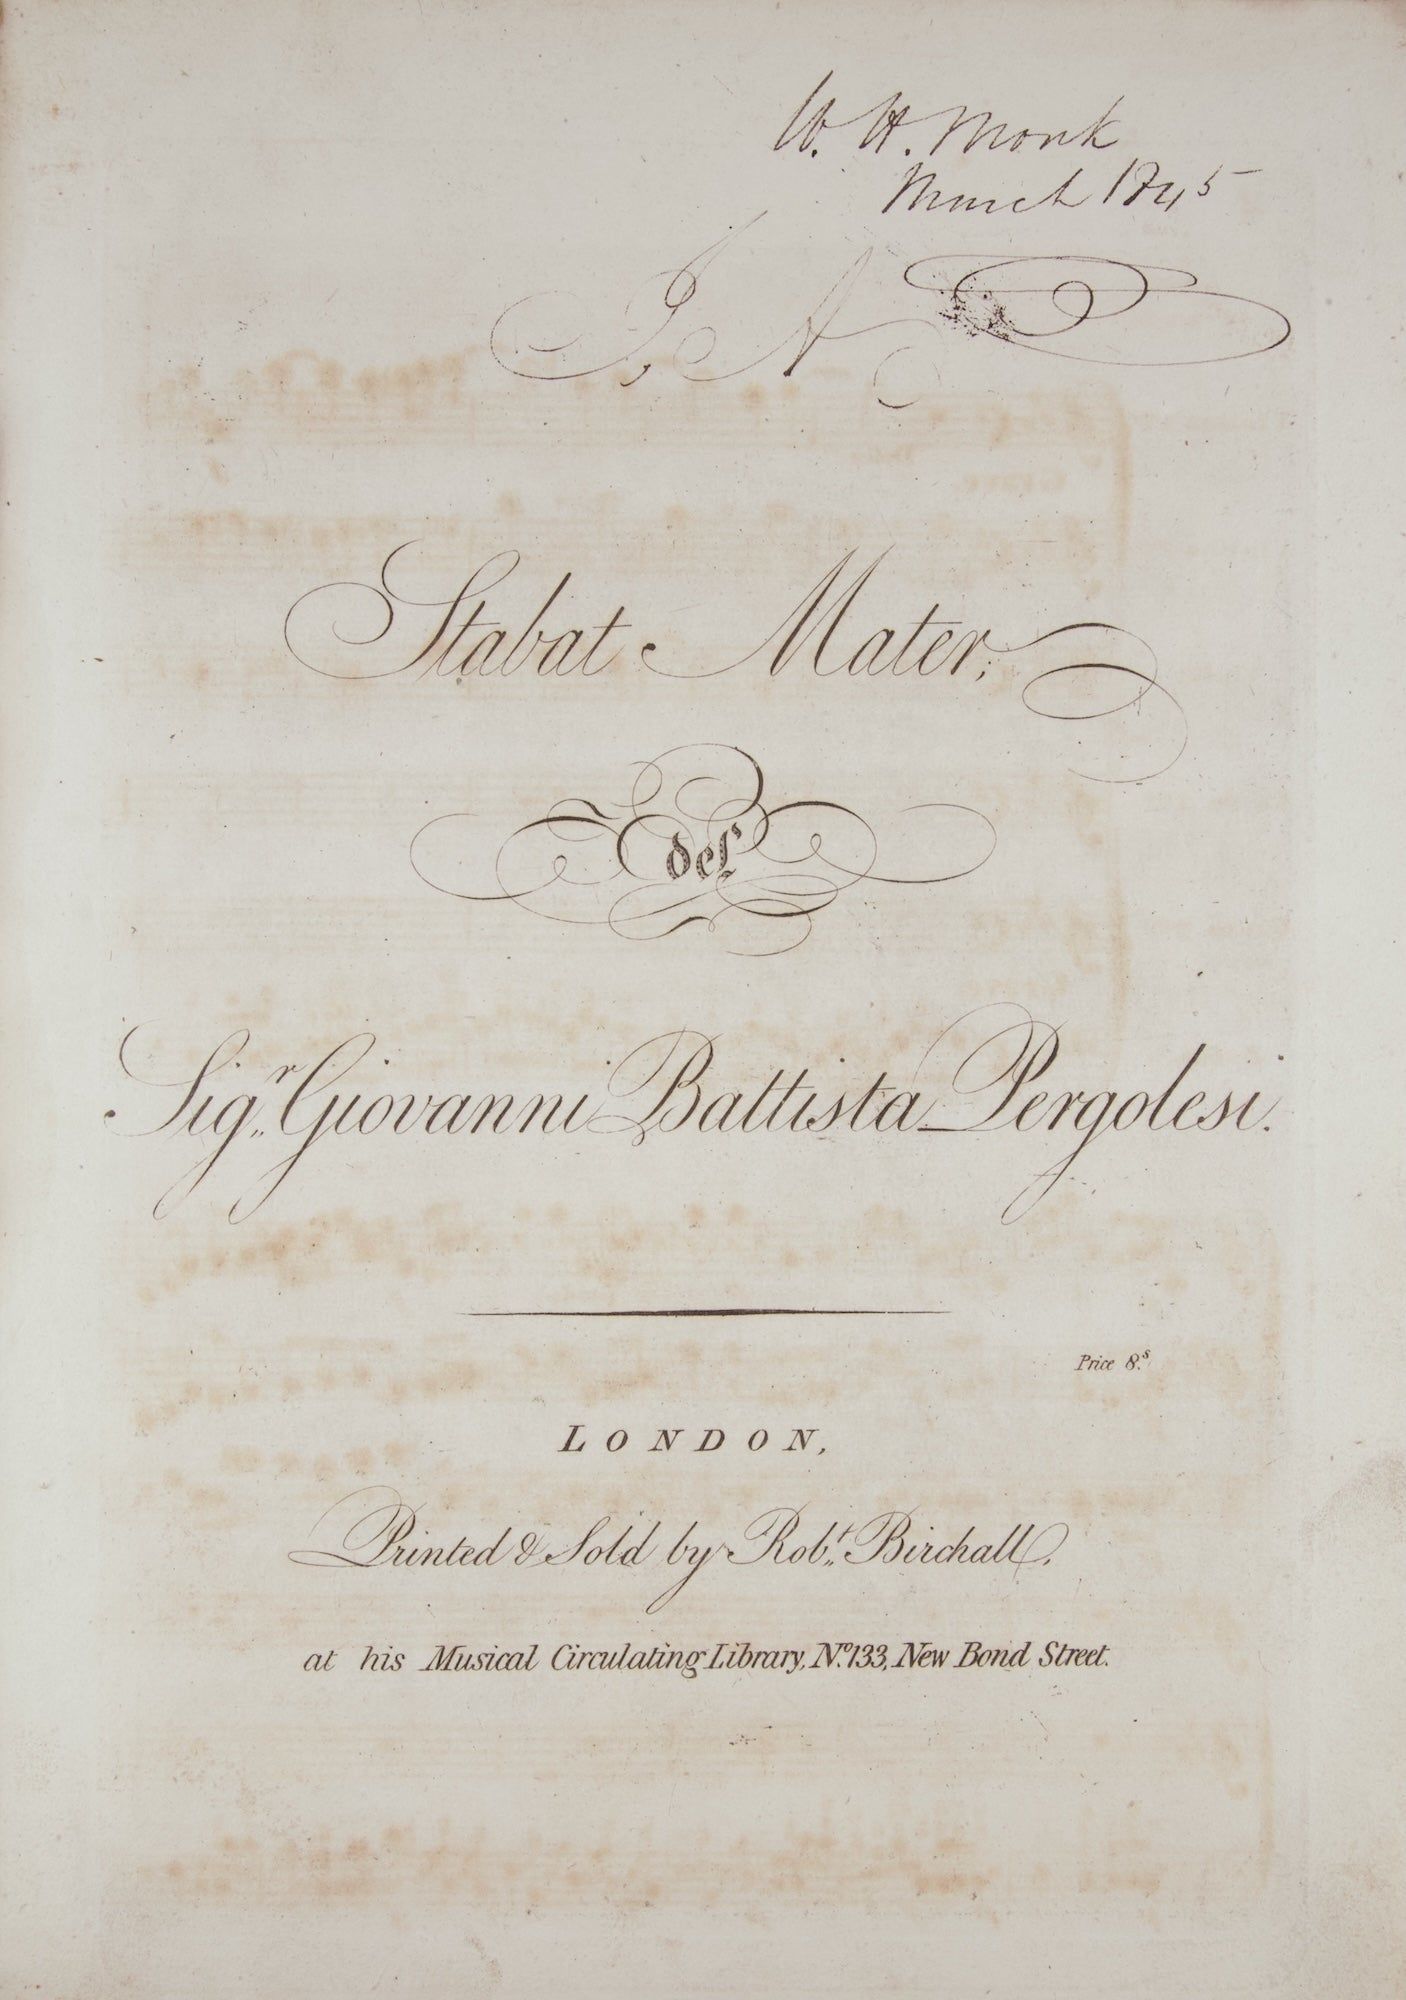 W. H. Monk
March 1845
Stabat Mater;
del
Sigr. Giovanni Battista Pergolesi.
Price 8.s
LONDON,
Printed & Sold by Robt. Birchall,
at his Musical Circulating Library, No. 133, New Bond Street.